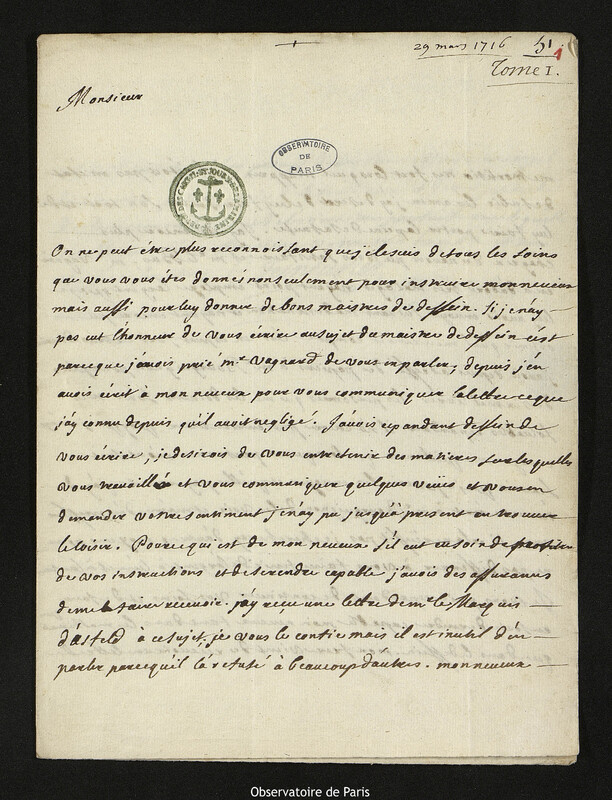 29 mars 1716 51
1
Tome I.
Monsieur
OBSERVATOIRE
DE
PARIS
On ne peut être plus reconnoissant que je le suis de tous les soins
que vous vous êtes donnés non seulement pour instruire mon neveux
mais aussi pour luy donner de bons maistres de dessein. si je n'ay
pas eut l'honneur de vous écrire au sujet du maistre de dessein c'est
parceque j'avois prié mr vagnard de vous en parler, depuis j'en
avois écrit à mon neveux pour vous communiquer la lettre ce que
j'ay connu depuis qu'il avoit negligé. J'avois cepandant dessein de
vous écrire, je desirois de vous entretenir des matieres sur lesquelles
vous travaillés et vous communiquer quelques veües et vous en
demander vostre sentiment je n'ay pu jusqu'à present en trouver
le loisir. Pour ce qui est de mon neveux s'il eut eu soin de profiter
de vos instructions et de se rendre capable j'avois des assurances
de me le faire recevoir. j'ay reçu une lettre de mr le Marquis
d'asfeld à ce sujet, je vous le confie mais il est inutil d'en
parler parcequ'il l'a refusé à beaucoup d'autres. mon neveux
Observatoire de Paris